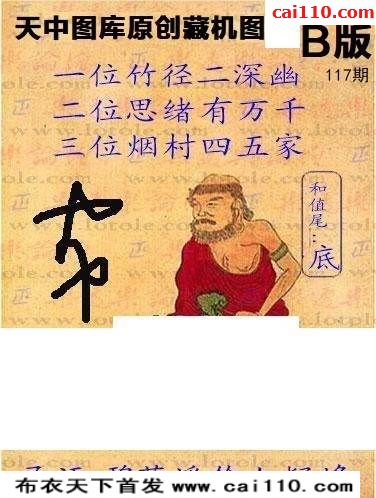 cai110.com
天中图库原创藏机图
B版
117期
一位竹径二深幽
二位思绪有万千
三位烟村四五家
和值尾：底
www.lotole.com
布衣天下首发 www.cai110.com